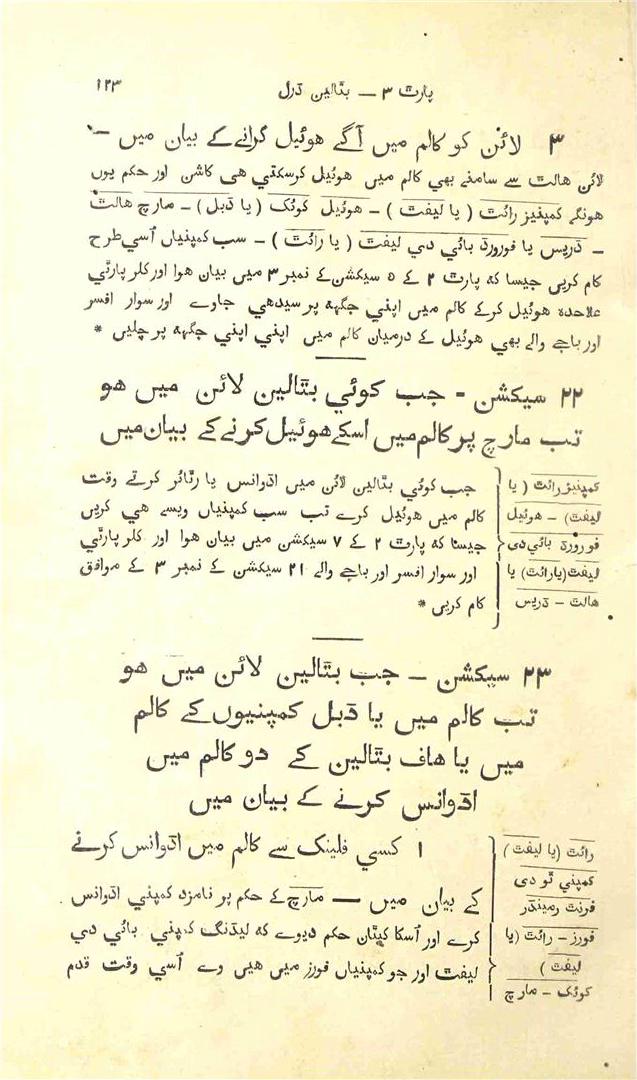 پارٹ ۳ — بٹالین ڈرل ۱۲۳
۳ لائن کو کالم میں آگے ھوئیل کرانے کے بیان میں —
لائن ھالٹ سے سامنے بھی کالم میں ھوئیل کرسکتي ھی کاشن اور حکم یوں
ھونگے کمپنیز رائٹ ( یا لیفٹ ) — ھوئیل کوئک ( یا ڈبل ) — مارچ ھالٹ
— ڈریس یا فورورڈ بائي دي لیفٹ ( یا رائٹ ) — سب کمپنیاں اُسي طرح
کام کریں جیسا کہ پارٹ ۲ کے ۵ سیکشن کے نمبر ۳ میں بیان ھوا اور کلر پارٹي
علاحدہ ھوئیل کرکے کالم میں اپني جگہہ پر سیدھي جاوے اور سوار افسر
اور باجے والے بھي ھوئیل کے درمیان کالم میں اپني اپني جگہہ پر چلیں *
۲۲ سیکشن - جب کوئي بٹالین لائن میں ھو
تب مارچ پر کالم میں اسکے ھوئیل کرنے کے بیان میں
کمپنیز رائٹ ( یا
لیفٹ) — ھوئیل
فورورڈ بائي دی
لیفٹ (یا رائٹ) یا
ھالٹ — ڈریس
جب کوئي بٹالین لائن میں اڈوانس یا رٹائر کرتے وقت
کالم میں ھوئیل کرے تب سب کمپنیاں ویسے ھي کریں
جیسا کہ پارٹ ۲ کے ۷ سیکشن میں بیان ھوا اور کلر پارٹي
اور سوار افسر اور باجے والے ۲۱ سیکشن کے نمبر ۳ کے موافق
کام کریں *
۲۳ سیکشن — جب بٹالین لائن میں ھو
تب کالم میں یا ڈبل کمپنیوں کے کالم
میں یا ھاف بٹالین کے دو کالم میں
اڈوانس کرنے کے بیان میں
رائٹ (یا لیفٹ )
کمپني ٹو دی
فرنٹ رمینڈر
فورز — رائٹ (یا
لیفٹ )
کوئک — مارچ
۱ کسي فلینک سے کالم میں اڈوانس کرنے
کے بیان میں — مارچ کے حکم پر نامزد کمپني اڈوانس
کرے اور اُسکا کپتان حکم دیوے کہ لیڈنگ کمپني بائي دي
لیفٹ اور جو کمپنیاں فورز میں ھیں وے اُسي وقت قدم